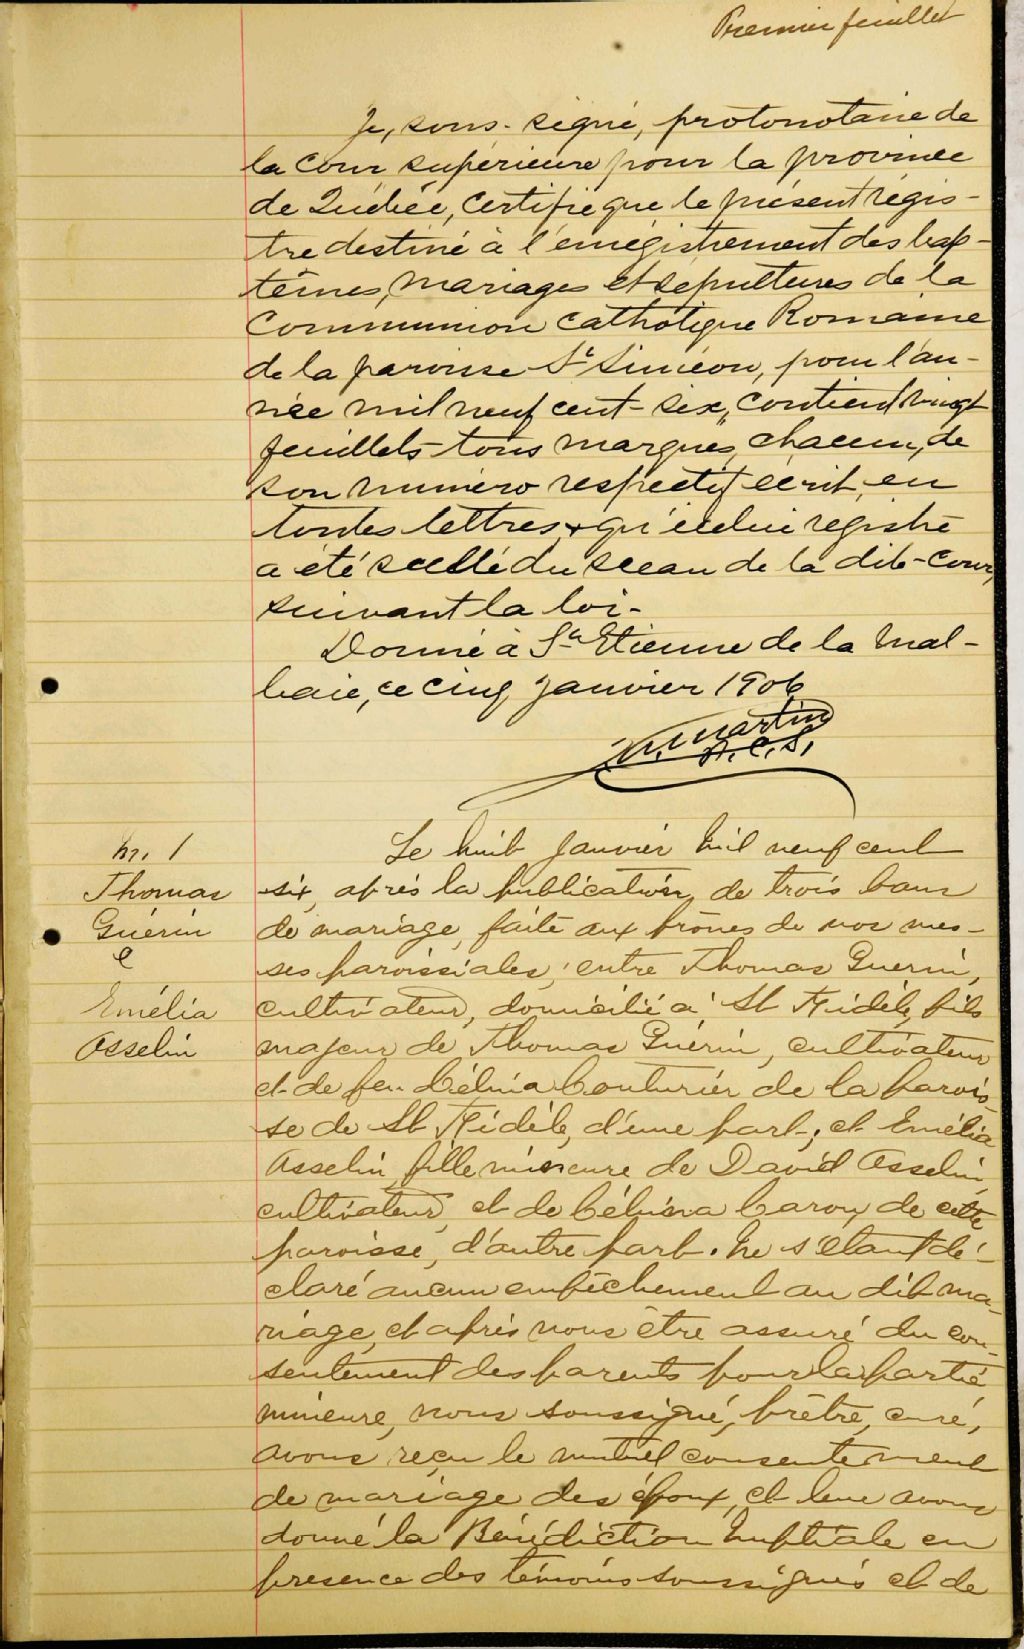 Premier feuillet
Je, sous-signé, protonotaire de
la cour supérieure pour la province
de Québec, certifie que le présent régis-
tre destiné à l'enrégistrement des bap-
têmes, mariages et sépultures de la
Communion Catholique Romaine
de la paroisse St Siméon, pour l'an-
née mil neuf cent-six, contient vingt
feuillets tous marqués, chacun, de
son numéro respectif écrit en
toutes lettres, & qu'icelui registre
a été scellé du sceau de la dite-Cour,
suivant la loi-
Donné à St Etienne de la Mal-
baie, ce cinq Janvier 1906
Martin
P.C.S.
M. 1
Thomas
Guérin
&
Emélia
Asselin
Le huit Janvier mil neuf cent
six, après la publication de trois bans
de mariage, faite aux prônes de nos mes-
ses paroissiales, entre Thomas Guérin,
cultivateur, domicilié à St Fidèle, fils
majeur de Thomas Guérin, cultivateur
et de feu Célina Couturier de la parois-
se de St Fidèle, d'une part; et Emélia
Asselin, fille mineure de David Asselin,
cultivateur, et de Célina Caron, de cette
paroisse, d'autre part. Ne s'étant dé-
claré aucun empêchement au dit ma-
riage, et après nous être assuré du con-
sentement des parents pour la partie
mineure, nous soussigné, prêtre, curé,
avons reçu le mutuel consentement
de mariage des époux, et leur avons
donné la Bénédiction Nuptiale en
présence des témoins soussignés et de